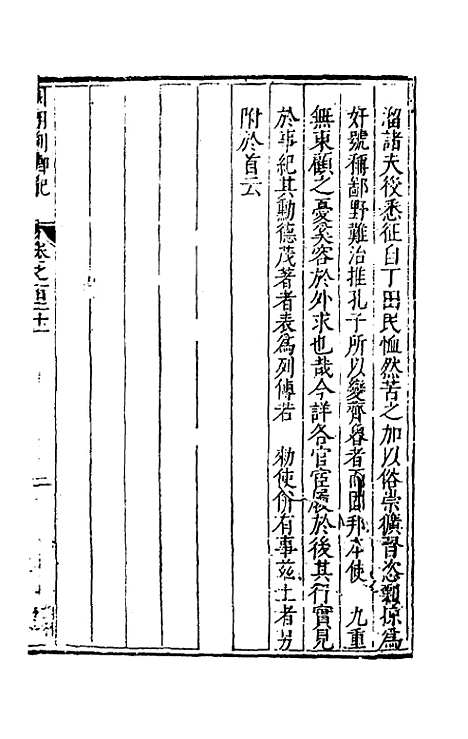 溜諸夫役悉征自丁田民恤然苦之加以俗崇獷習恣剽掠爲
奸號稱鄙野難治推孔子所以變齊魯者而固邦本使　九重
無東顧之憂奚容於外求也哉今詳各官宦履於後其行實見
於事紀其勳德茂著者表爲列傳若　勑使併有事茲土者另
附於首云
國朝列卿紀
卷之百三十